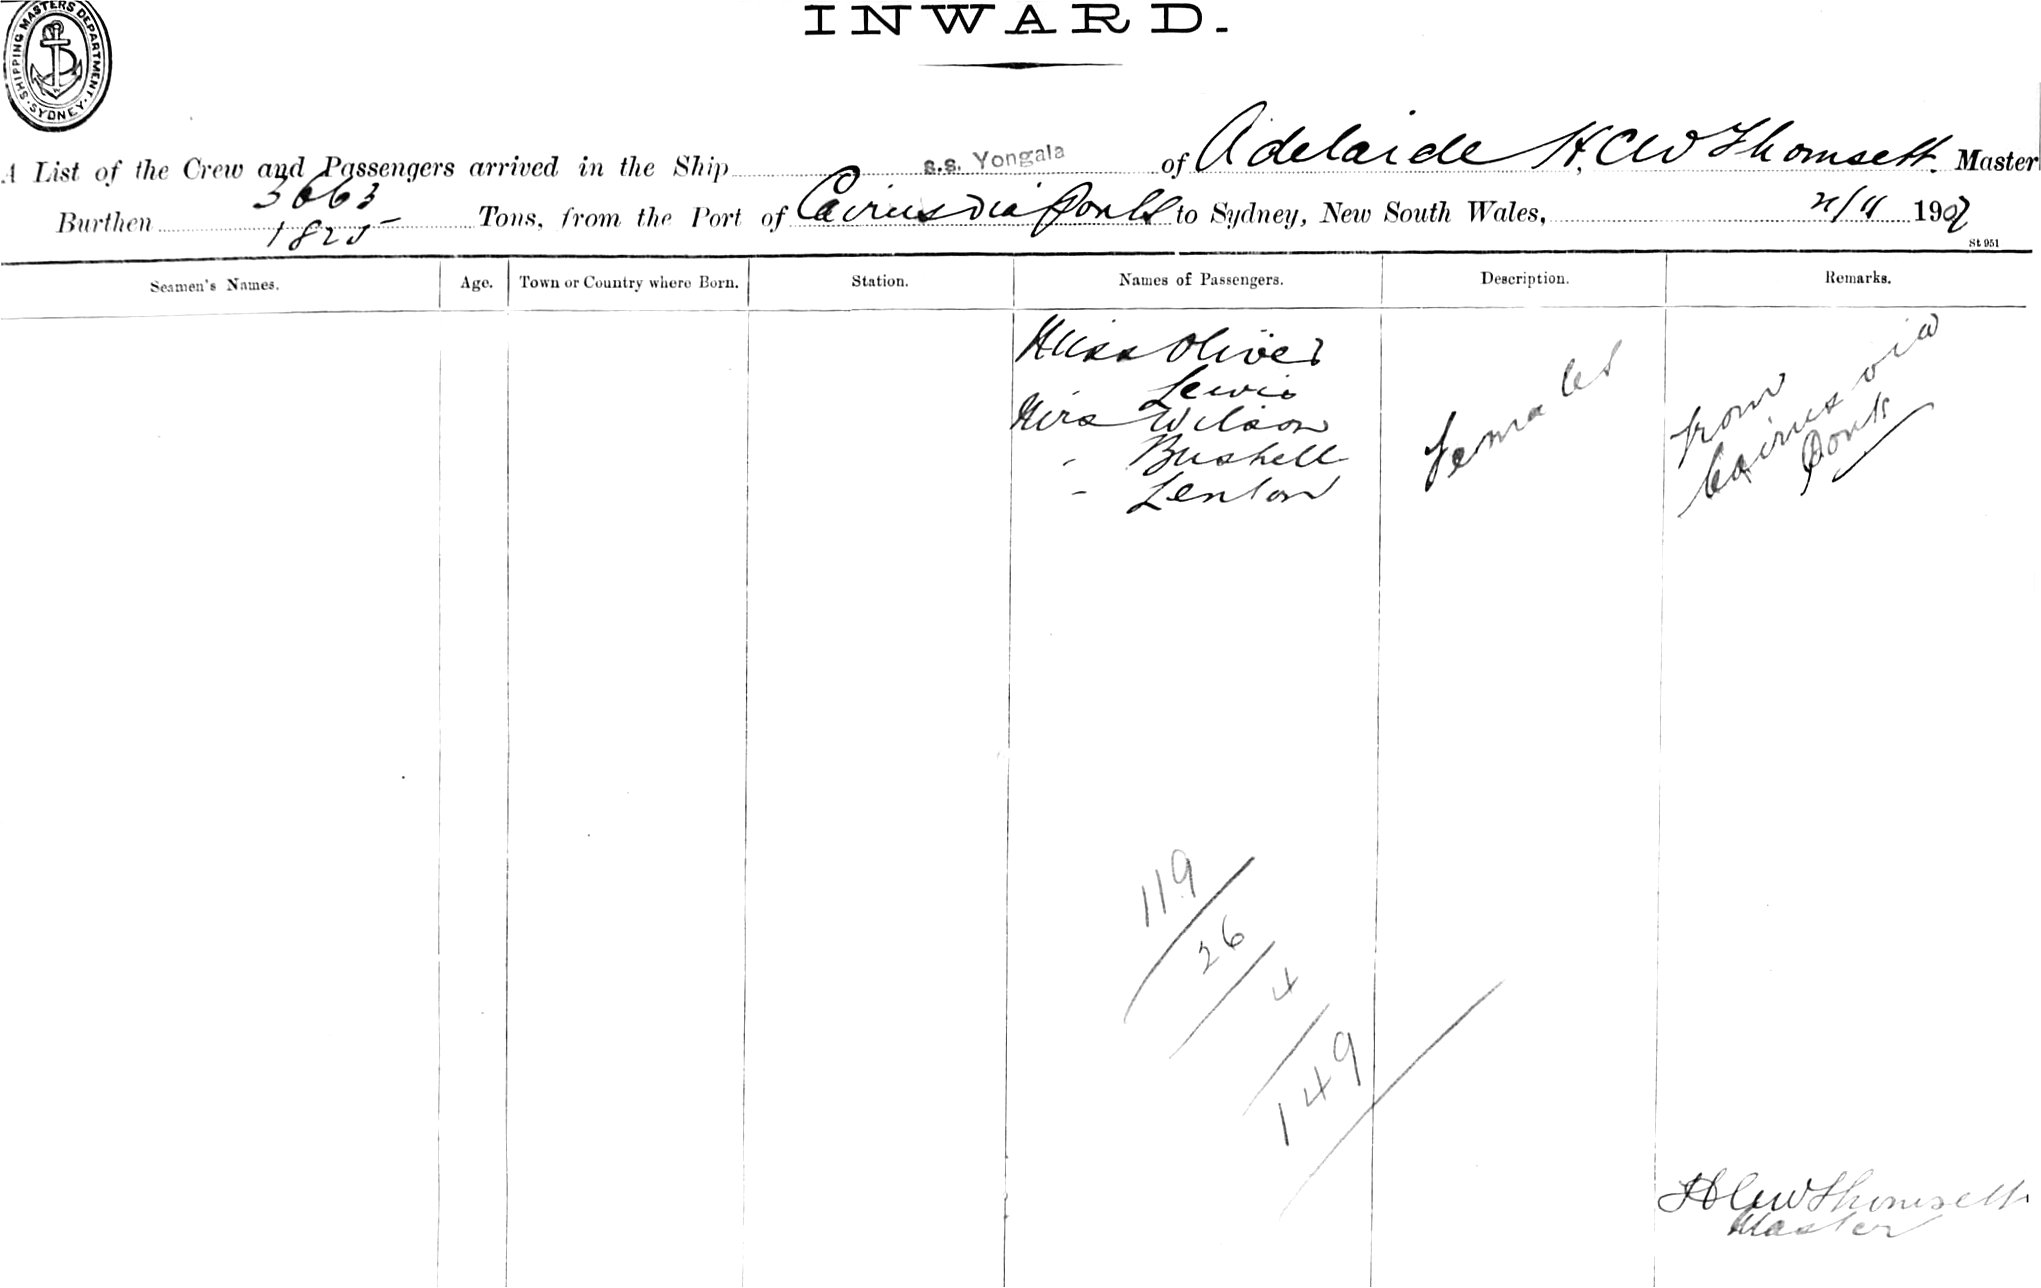 INWARD.
SHIPPING MASTERS DEPARTMENT
SYDNEY
A List of the Crew and Passengers arrived in the Ship s.s. Yongala of Adelaide H, C W Thomsett. Master
3663
Burthen 1825 Tons, from the Port of Cairns via Ports to Sydney, New South Wales, 1907
St 951
Seamen's Names. Age. Town or Country where Born. Station. Names of Passengers. Description. Remarks.
Miss Oliver
Lewis
Mrs Wilson
" Bushell
" Lenton
females
from
Cairns via
Ports
119
26
4
149
H C W Thomsett
Master